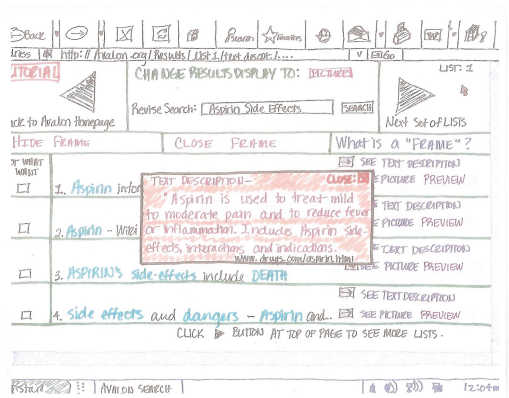 Back Search Favorites
dress http://Avalon.org/Results/List1/text descpt./.... Go
UTORIAL CHANGE RESULTS DISPLAY TO: PICTURES LIST: 1
Revise Search: Aspirin Side Effects SEARCH
ck to Avalon Homepage Next Set of LISTS
HIDE FRAME CLOSE FRAME What is a "FRAME"?
OT WHAT
WANT
SEE TEXT DESCRIPTION
1. Aspirin infor E PICTURE PREVIEW
TEXT DESCRIPTION- CLOSE: X
"Aspirin is used to treat mild
to moderate pain and to reduce fever
or inflammation. Includes Aspirin side-
effects, interactions and indications.
www.drugs.com/aspirin.html
E TEXT DESCRIPTION
2. Aspirin - E PICTURE PREVIEW
E TEXT DESCRIPTION
3. ASPIRIN'S side-effects include DEATH SEE PICTURE PREVIEW
SEE TEXT DESCRIPTION
4. Side effects and dangers - Aspirin and... SEE PICTURE PREVIEW
CLICK BUTTON AT TOP OF PAGE TO SEE MORE LISTS.
Start AVALON SEARCH 12:04am